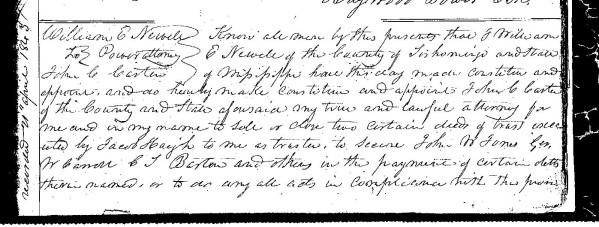 William E Newele
To } Power attorny
John C Carter
Know all men by this presents that I William
E Newele of the County of Tishomingo and State
of Mississippi have this day made constitute and
appoint and do hereby make constitute and appoint John C Carter
of the County and State aforesaid my true and lawful attorney for
me and in my name to sole or close two certain deeds of trust execu
uted by Jacob Haugh to me as trustee, to secure John W Jones Geo.
W Carroll C T Barton and others in the payment of certain debts
therein named, or to do any all acts in compliance with the provi
recorded 21 april 1843